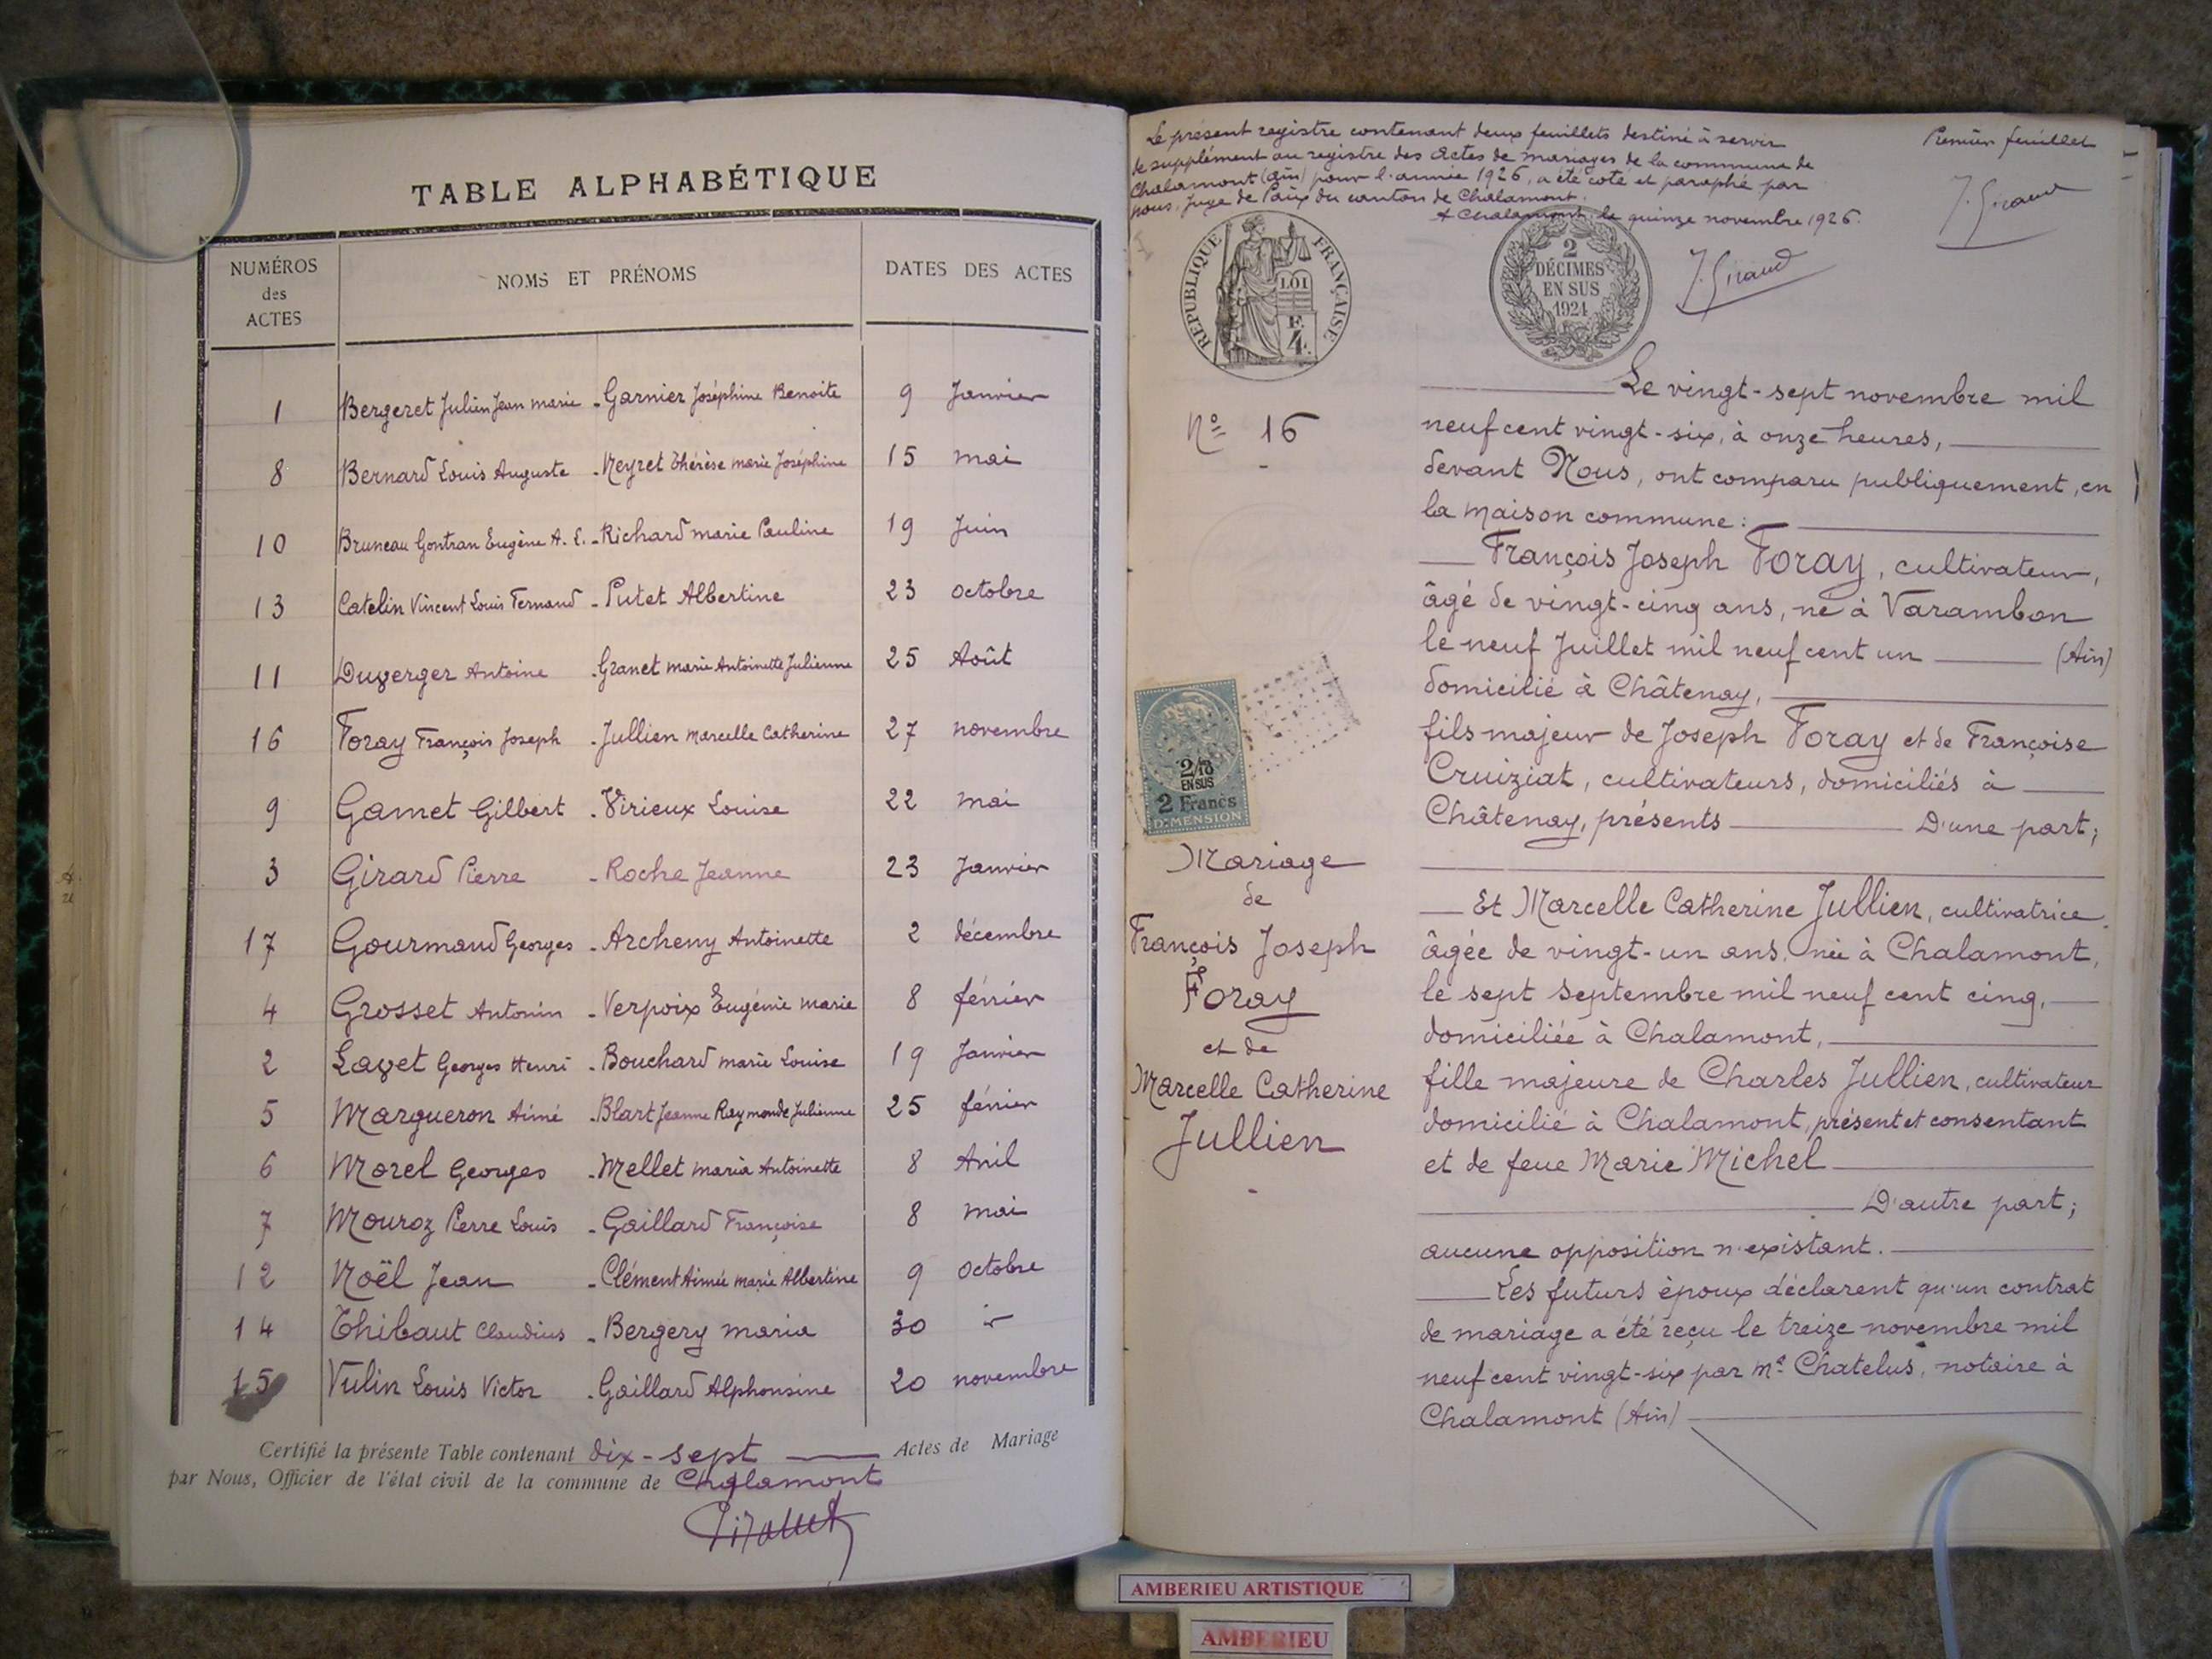 TABLE ALPHABÉTIQUE
NUMÉROS des ACTES NOMS ET PRÉNOMS DATES DES ACTES
1 Bergeret Julien Jean marie - Garnier Joséphine Benoite 9 Janvier
8 Bernard Louis Auguste - Neyret Thérèse marie Joséphine 15 mai
10 Bruneau Gontran Eugène A. E. - Richard marie Pauline 19 Juin
13 Catelin Vincent Louis Fernand - Putet Albertine 23 octobre
11 Duverger Antoine - Granet marie Antoinette Julienne 25 Août
16 Foray François Joseph - Jullien Marcelle Catherine 27 novembre
9 Gamet Gilbert - Virieux Louise 22 mai
3 Girard Pierre - Roche Jeanne 23 Janvier
17 Gourmand Georges - Archeny Antoinette 2 décembre
4 Grosset Antonin - Verpoix Eugénie marie 8 février
2 Lavet Georges Henri - Bouchard marie Louise 19 Janvier
5 Margueron Aimé - Blart Jeanne Raymonde Julienne 25 février
6 Morel Georges - Mellet maria Antoinette 8 Avril
7 Mouroz Pierre Louis - Gaillard Françoise 8 mai
12 Noël Jean - Clément Aimée marie Albertine 9 octobre
14 Thibaut Claudius - Bergery maria 30
15 Vulin Louis Victor - Gaillard Alphonsine 20 novembre
Certifié la présente Table contenant dix-sept Actes de Mariage
par Nous, Officier de l'état civil de la commune de Chalamont
Le présent registre contenant deux feuillets destiné à servir
de supplément au registre des Actes de mariages de la commune de
Chalamont (Ain) pour l'année 1926, a été coté et paraphé par
nous, Juge de Paix du canton de Chalamont.
A Chalamont, le quinze novembre 1926.
Premier feuillet
J. Giraud
J. Giraud
RÉPUBLIQUE FRANÇAISE
LOI
F.
4.
2
DÉCIMES
EN SUS
1924
No 16
2/10
EN SUS
2 Francs
DIMENSION
Mariage
de
François Joseph
Foray
et de
Marcelle Catherine
Jullien
Le vingt-sept novembre mil
neuf cent vingt-six, à onze heures,
devant Nous, ont comparu publiquement, en
la maison commune :
François Joseph Foray, cultivateur,
âgé de vingt-cinq ans, né à Varambon
le neuf Juillet mil neuf cent un (Ain)
domicilié à Châtenay,
fils majeur de Joseph Foray et de Françoise
Cruiziat, cultivateurs, domiciliés à
Châtenay, présents D'une part;
Et Marcelle Catherine Jullien, cultivatrice,
âgée de vingt-un ans, née à Chalamont,
le sept septembre mil neuf cent cinq,
domiciliée à Chalamont,
fille majeure de Charles Jullien, cultivateur
domicilié à Chalamont, présent et consentant
et de feue Marie Michel
D'autre part;
aucune opposition n'existant.
Les futurs époux déclarent qu'un contrat
de mariage a été reçu le treize novembre mil
neuf cent vingt-six par Me Chatelus, notaire à
Chalamont (Ain)
AMBERIEU ARTISTIQUE
AMBERIEU